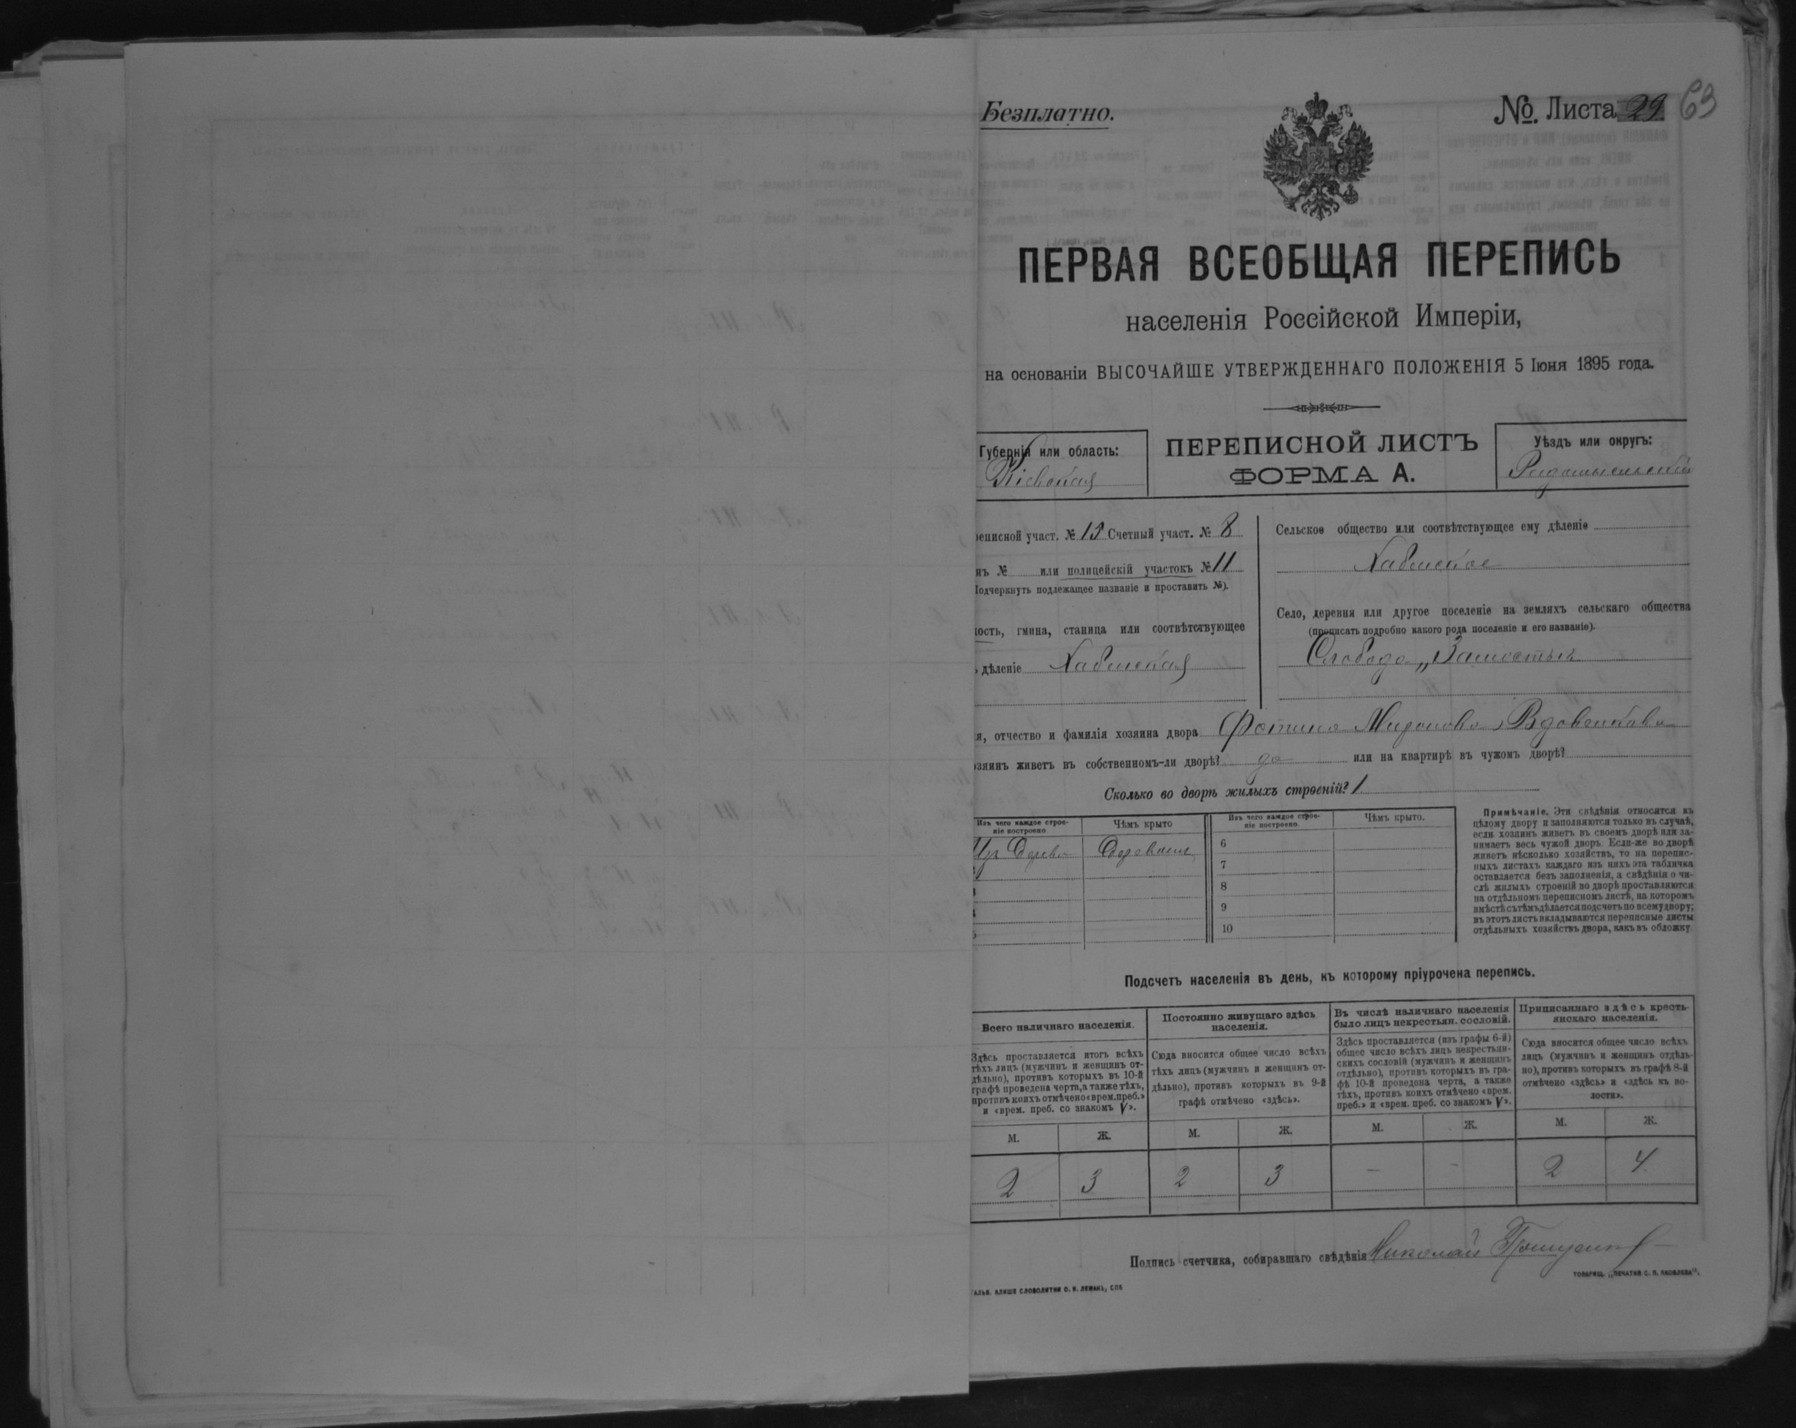 Безплатно.
№ Листа 29 63
ПЕРВАЯ ВСЕОБЩАЯ ПЕРЕПИСЬ
населенія Россійской Имперіи,
на основаніи ВЫСОЧАЙШЕ УТВЕРЖДЕННАГО ПОЛОЖЕНІЯ 5 Іюня 1895 года.
Губернія или область:
Кіевская
ПЕРЕПИСНОЙ ЛИСТЪ
ФОРМА А.
Уѣздъ или округъ:
Радомысльскій
реписной участ. № 13 Счетный участ. № 8
нъ № или полицейскій участокъ № 11
Подчеркнуть подлежащее названіе и проставить №).
ость, гмина, станица или соотвѣтствующее
дѣленіе Хабенская
Сельское общество или соотвѣтствующее ему дѣленіе
Хабенское
Село, деревня или другое поселеніе на земляхъ сельскаго общества
(прописать подробно какого рода поселеніе и его названіе).
Слобода „Замостье
я, отчество и фамилія хозяина двора Фотина Миронова Вдовенкова
озяинъ живетъ въ собственномъ-ли дворѣ? да или на квартирѣ въ чужомъ дворѣ?
Сколько во дворѣ жилыхъ строеній? 1
Изъ чего каждое строе-
ніе построено
Чѣмъ крыто
Изъ чего каждое строе-
ніе построено.
Чѣмъ крыто.
Изъ дерева
6
7
8
9
10
Примѣчаніе. Эти свѣдѣнія относятся къ
цѣлому двору и заполняются только въ случаѣ,
если хозяинъ живетъ въ своемъ дворѣ или за-
нимаетъ весь чужой дворъ. Если-же во дворѣ
живетъ нѣсколько хозяйствъ, то на перепис-
ныхъ листахъ каждаго изъ нихъ эта табличка
оставляется безъ заполненія, а свѣдѣнія о чи-
слѣ жилыхъ строеній во дворѣ проставляются
на отдѣльномъ переписномъ листѣ, на которомъ
вмѣстѣ съ тѣмъ дѣлается подсчетъ по всему двору;
въ этотъ листъ вкладываются переписные листы
отдѣльныхъ хозяйствъ двора, какъ въ обложку.
Подсчетъ населенія въ день, къ которому пріурочена перепись.
Всего наличнаго населенія.
Здѣсь проставляется итогъ всѣхъ
тѣхъ лицъ (мужчинъ и женщинъ от-
дѣльно), противъ которыхъ въ 10-й
графѣ проведена черта, а также тѣхъ,
противъ коихъ отмѣчено «врем. преб.»
и «врем. преб. со знакомъ V».
Постоянно живущаго здѣсь
населенія.
Сюда вносится общее число всѣхъ
тѣхъ лицъ (мужчинъ и женщинъ от-
дѣльно), противъ которыхъ въ 9-й
графѣ отмѣчено «здѣсь».
Въ числѣ наличнаго населенія
было лицъ некрестьян. сословій.
Здѣсь проставляется (изъ графы 6-й)
общее число всѣхъ лицъ некрестьян-
скихъ сословій (мужчинъ и женщинъ
отдѣльно), противъ которыхъ въ гра-
фѣ 10-й проведена черта, а также
тѣхъ, противъ коихъ отмѣчено «врем.
преб.» и «врем. преб. со знакомъ V».
Приписаннаго здѣсь кресть-
янскаго населенія.
Сюда вносится общее число всѣхъ
лицъ (мужчинъ и женщинъ отдѣль-
но), противъ которыхъ въ графѣ 8-й
отмѣчено «здѣсь» и «здѣсь къ во-
лости».
М. Ж. М. Ж. М. Ж. М. Ж.
2 3 2 3 - - 2 4
Подпись счетчика, собиравшаго свѣдѣнія Николай
ТОВАРИЩ. „ПЕЧАТНЯ С. П. ЯКОВЛЕВА“.
АЛЬВ. КЛИШЕ СЛОВОЛИТНИ О. И. ЛЕМАНЪ, СПБ